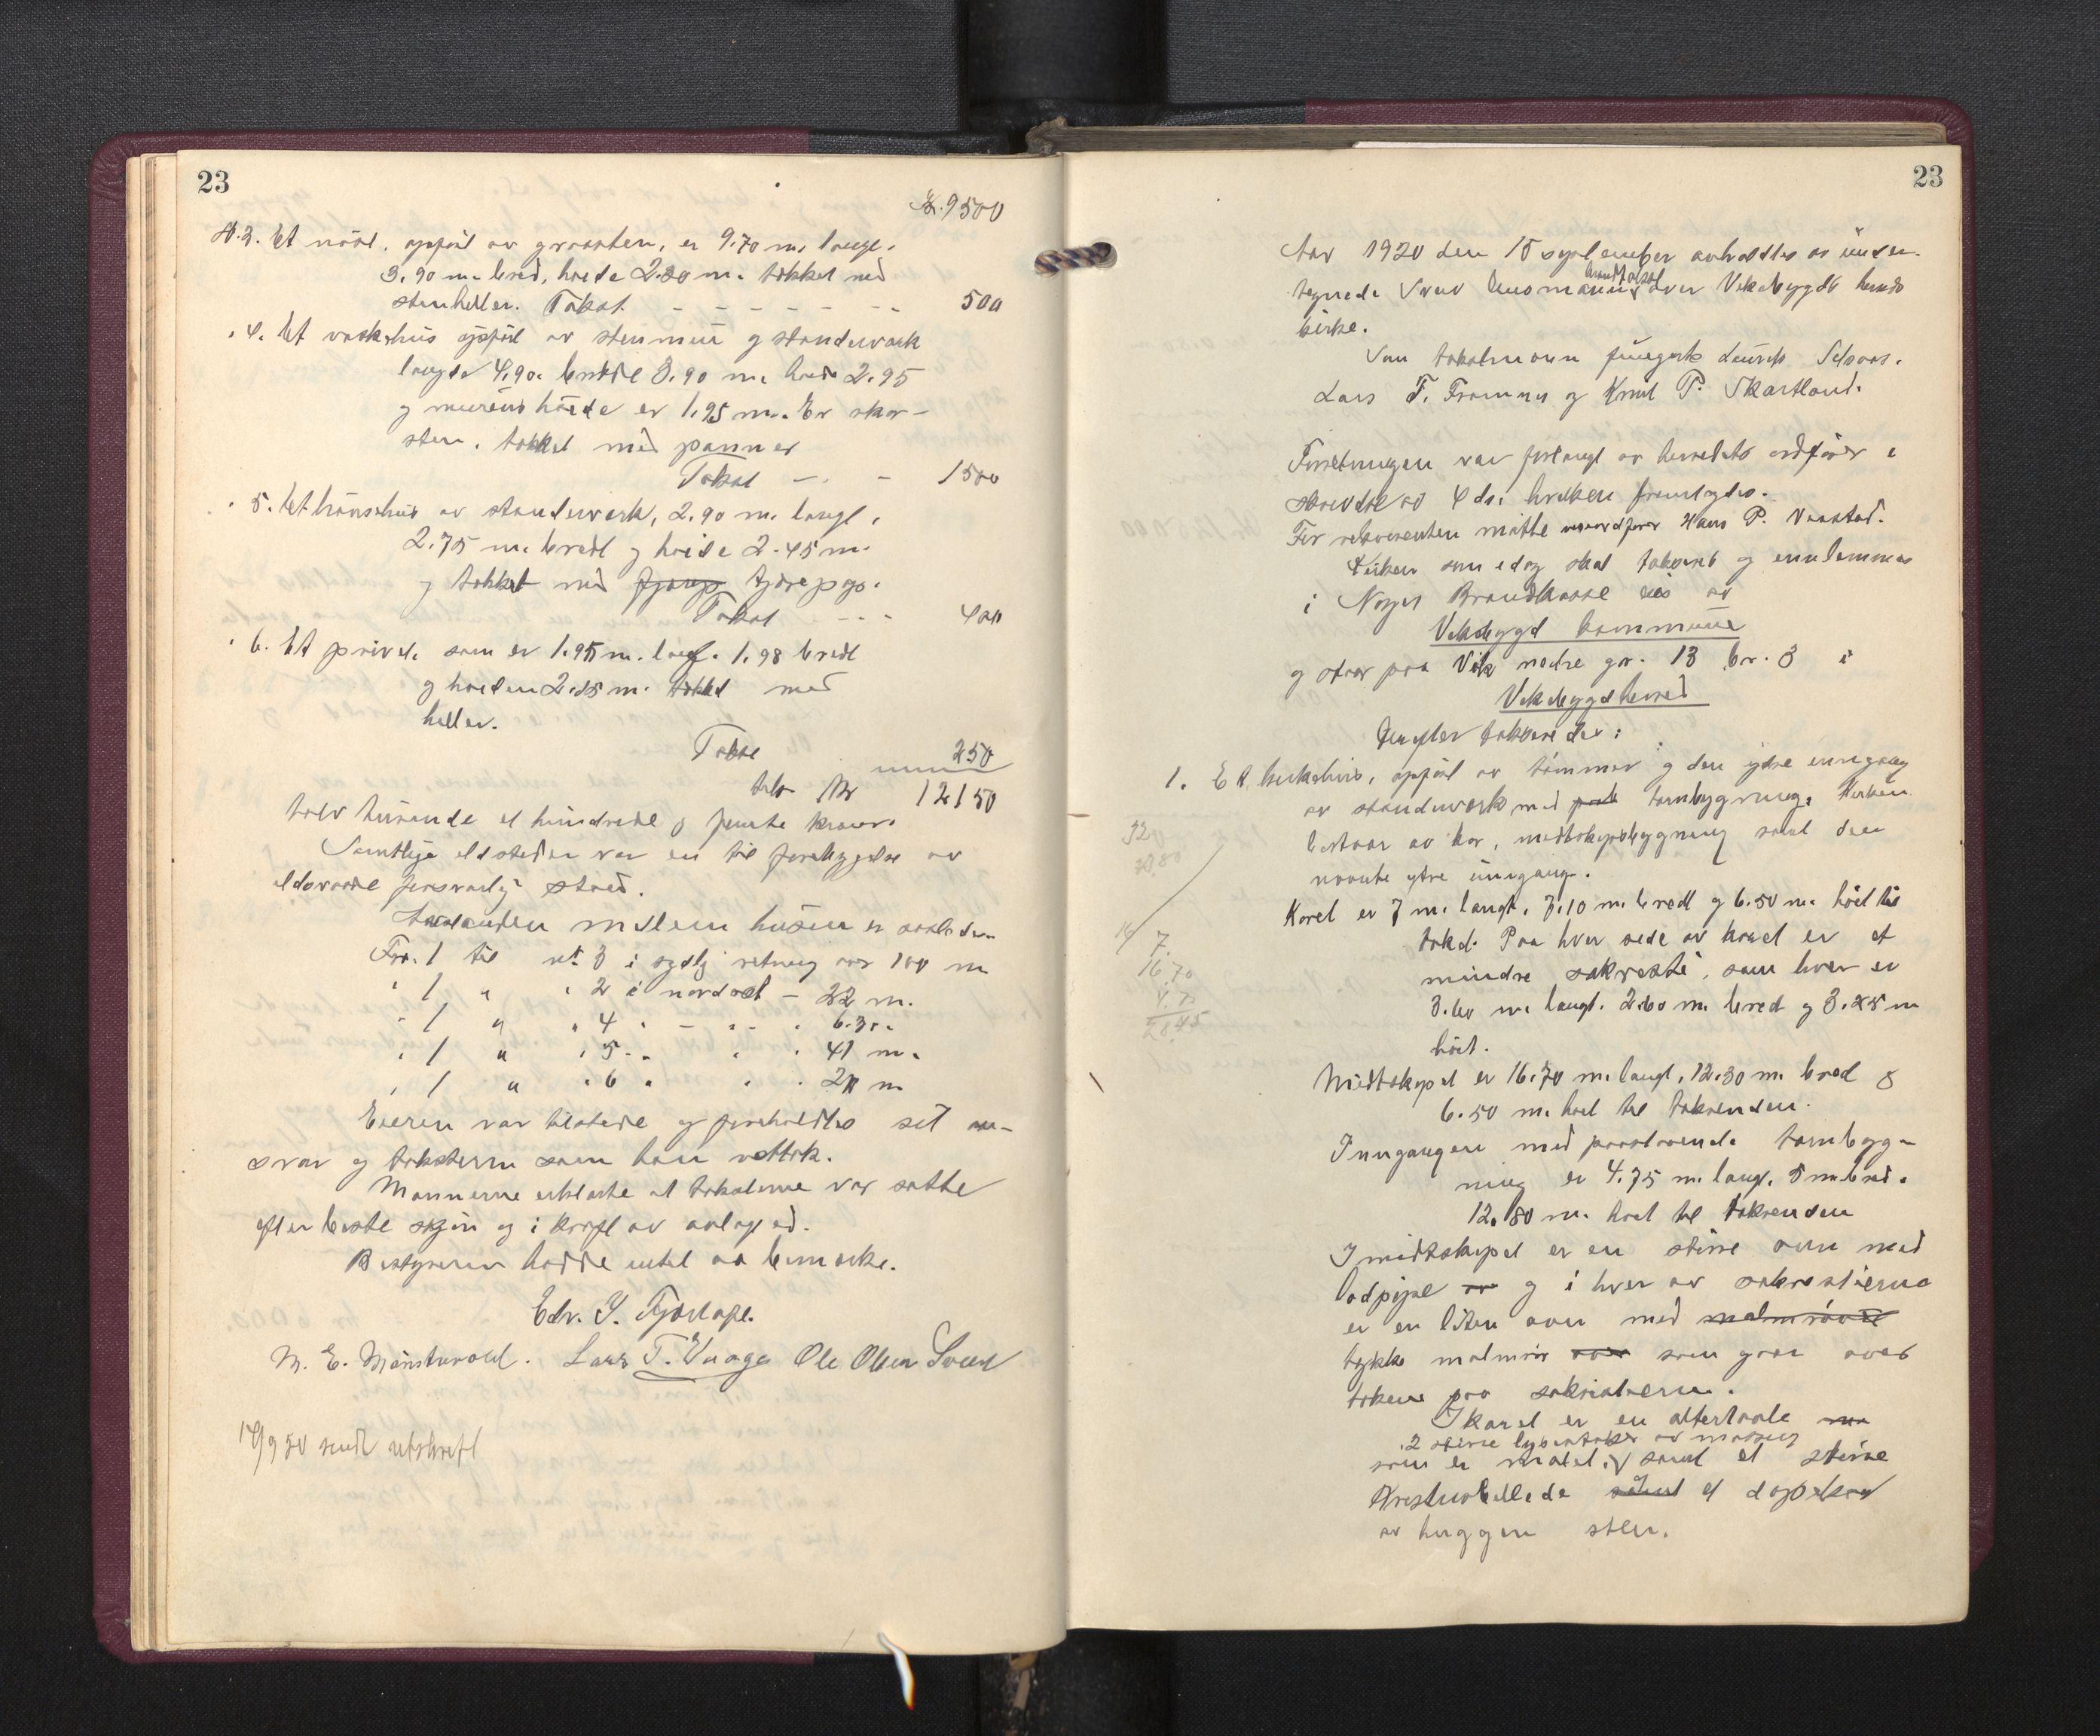 23
Kr. 9500
N. 3. Et nöst, opfört av graasten, er 9.70 m. langt,
3.90 m. bred, høide 2.20 m. takket med
stenheller. Takst - - - - - - - 500
" 4. Et vaskehus opfört av stenmur og standerverk
længde 4.90. bredde 3.90 m. høide 2.95
og murens høide er 1.95 m. Er skor-
sten. takket med panner
Takst - - 1500
" 5. Et hönsehus av standerverk, 2.90 m. langt,
2.75 m. bredt og høide 2.45 m.
og takket med tjærepap.
Takst - - - 400
" 6. Et privet. som er 1.95 m. langt. 1.98 bredt
og høiden 2.25 m. takket med
heller.
Takst 250
tils. Kr 12150
tolv tusende et hundrede og femte kroner.
Samtlige ildsteder var en til forebyggelse av
ildsvaade forsvarlig stand.
Avstanden mellem husene er saaledes
Fra. 1 til nr. 3 i sydlig retning over 100 m
" 1 " " 2 i nordost - 22 m.
" 1 " " 4 " - " - " 6.35.
" 1 " " 5 - " " " 41 m.
" 1 " " 6 " " " 21 m
Eieren var tilstede og foreholdtes sit an-
svar og taksterne som han vedtok.
Mændene erklærte at taksterne var satte
efter beste skjön og i kraft av avlagt ed.
Bestyreren hadde intet aa bemerke.
Edv. Y. Fjöslage.
M. E. Mönstervold. Lars T. Vaage Ole Olsen Sveen
14/9 50 sendt utskrift
23
Aar 1920 den 15 september avholdtes av under-
tegnede branntakst
over Vikebygds herreds
kirke.
Som takstmænn fungerte Laurits Selsaas.
Lars T. Framnes og Knut P. Skartland.
Forretningen var forlangt av herredets ordförer i
skrivelse av 4 ds. hvilken fremlagdes.
For rekvirenten mötte viceordförer Hans P. Vaastad.
Kirken som idag skal takseres og innlemmes
i Norges Brandkasse eies av
Vikebygd kommune
og staar paa Vik nedre gnr. 13 br. 3 i
Vikebygd herred
Derefter taksertes:
1. Et kirkehus, opfört av tömmer og den ytre inngang
av standerverk med taarnbygning. Kirken
bestaar av kor, midtskipsbygning samt den
nævnte ytre inngang.
Koret er 7 m. langt. 7.10 m. bredt og 6.50 m. höit til
taket. Paa hver side av koret er et
mindre sakresti, som hver er
3.60 m. langt. 2.60 m. bred og 3.25 m
höit.
Midtskipet er 16.70 m. langt, 12.30 m. bred og
6.50 m. höit til takrenden.
Inngangen med paastaaende taarnbyg-
ning er 4.75 m. lang. 5 m. bred.
12.80 m. höit til takrenden
I midtskipet er en större ovn med
ladpipe og i hver av sakrestierne
er en liten ovn med
tykke malmrör som gaar over
taken paa sakristierne.
I koret er en altertavle
2 större lysestaker av messing
som er malet, samt et större
Kristusbillede et döpekar
av huggen sten.
320
20.80
7.
16.70
4.75
28.45